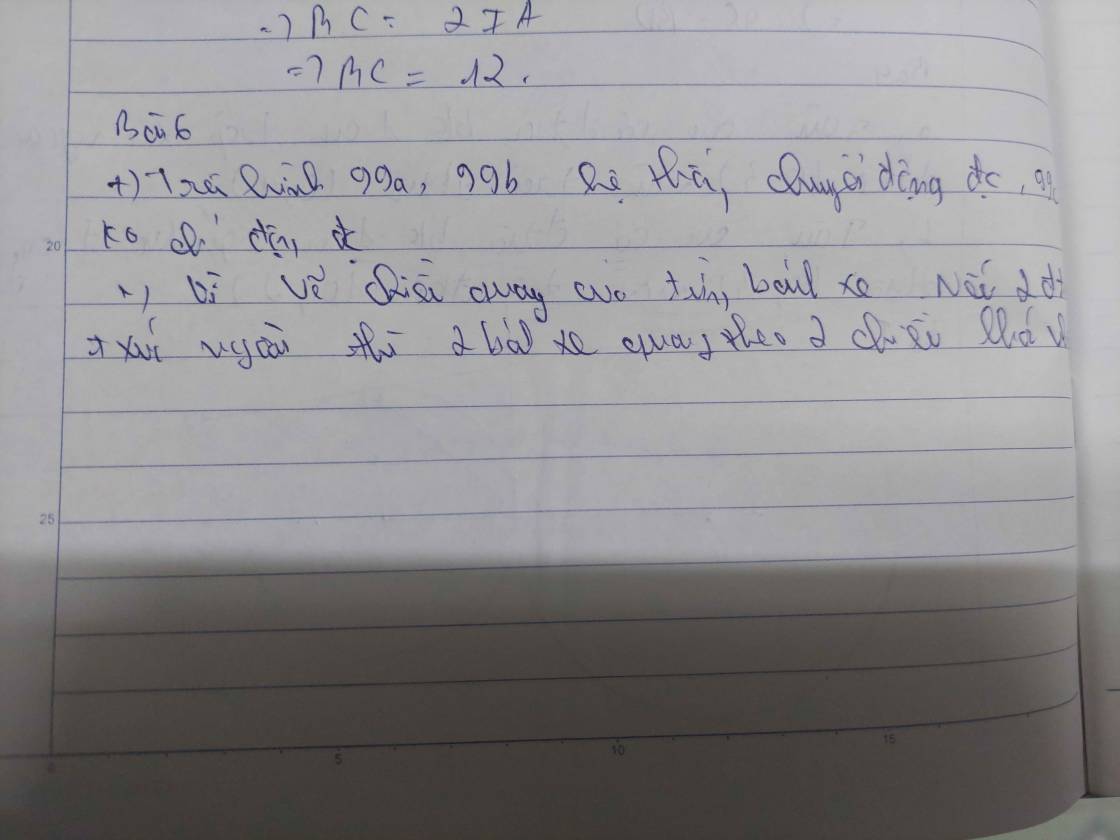 => BC = 2IA
=> BC = 12.
Bài 6
+) Trên hình 99a, 99b hệ thống chuyển động đc, 99c
ko ch động đc
+, Vì vẽ chiều quay của từng bánh xe Nếu 2 đt
t xúc ngoài thì 2 bánh xe quay theo 2 chiều khá
20
25
0
5
10
15